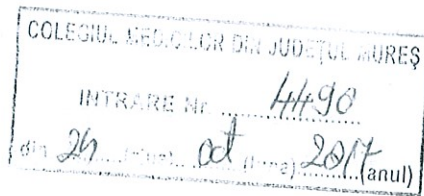 COLEGIUL MEDICILOR DIN JUDEȚUL MUREȘ
INTRARE Nr. 4490
din 24 (ziua) oct (luna) 2017 (anul)